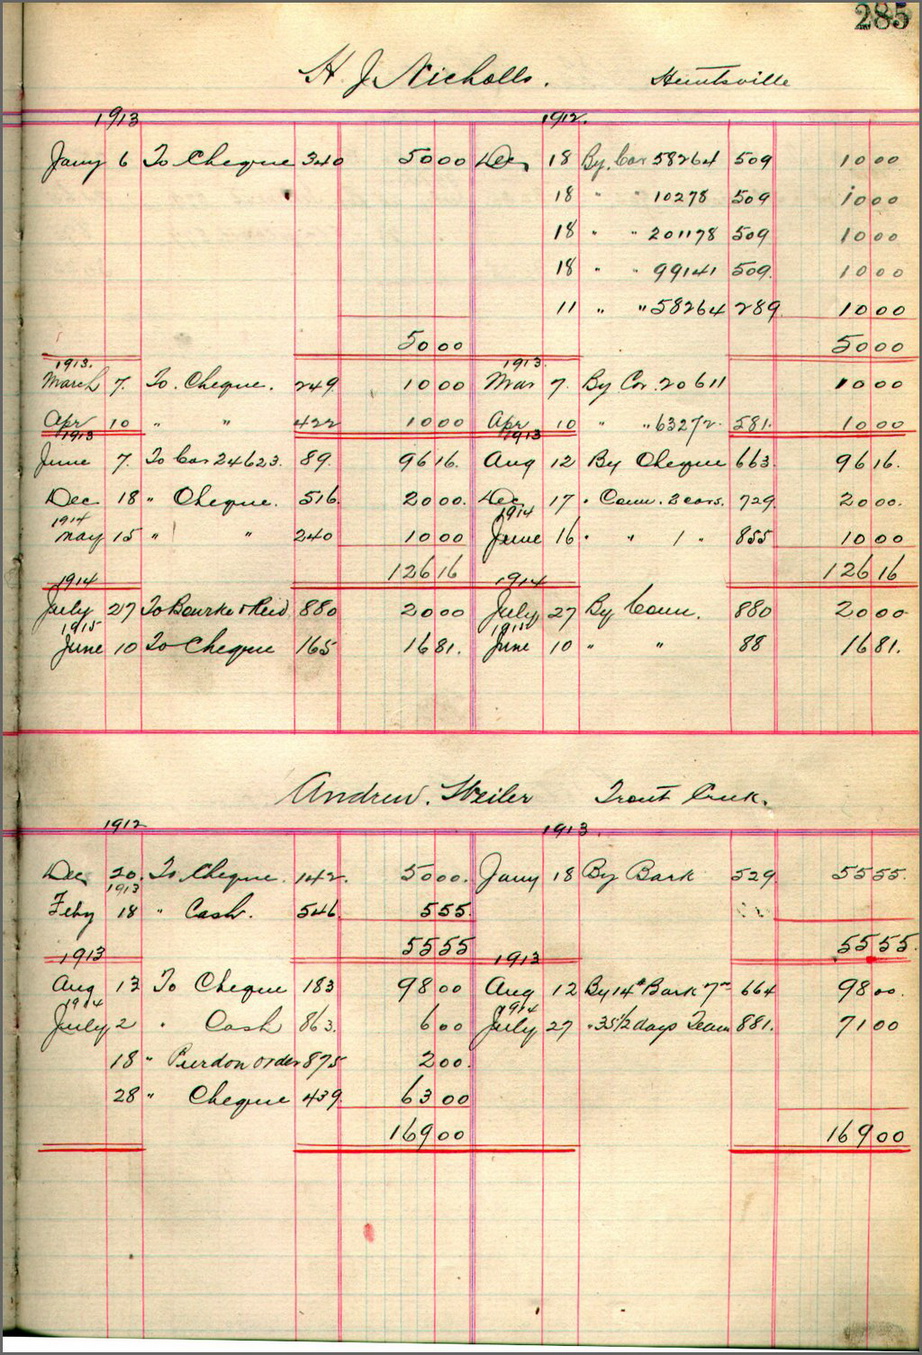 285
H J Nicholls. Huntsville
1913 1912.
Jany 6 To Cheque 340 50 00 Dec 18 By Car 58264 509 10 00
18 " " 10278 509 10 00
18 " " 201178 509 10 00
18 " " 99141 509. 10 00
11 " " 58264 289 10 00
50 00 50 00
1913. 1913
March 7. To. Cheque. 249 10 00 Mar 7. By Car. 20611 10 00
Apr 10 " " 422 10 00 Apr 10 " " 63272. 581. 10 00
1913 1913
June 7. To Car 24623. 89. 96 16. Aug 12 By Cheque 663. 96 16.
Dec 18 " Cheque. 516. 20 00. Dec 17 " Comm. 2 cars. 729. 20 00.
1914 1914
May 15 " " 240 10 00 June 16 " " 1 " 855 10 00
126 16 126 16
1914 1914
July 27 To Bourke & Reid 880 20 00 July 27 By Comm. 880 20 00
1915 1915
June 10 To Cheque 165 16 81. June 10 " " 88 16 81.
Andrew. Weiler Trout Creek.
1912 1913.
Dec 20. To Cheque. 142. 50 00. Jany 18 By Bark 529. 55 55.
1913
Feby 18 " Cash. 546. 5 55.
55 55 55 55.
1913 1913
Aug 13 To Cheque 183 98 00 Aug 12 By 14 Bark 664 98 00.
1914 1914
July 2 " Cash 863. 6 00 July 27 " 35 1/2 days Team 881. 71 00
18 " Purdon order 875 2 00.
28 " Cheque 439. 63 00
169 00 169 00